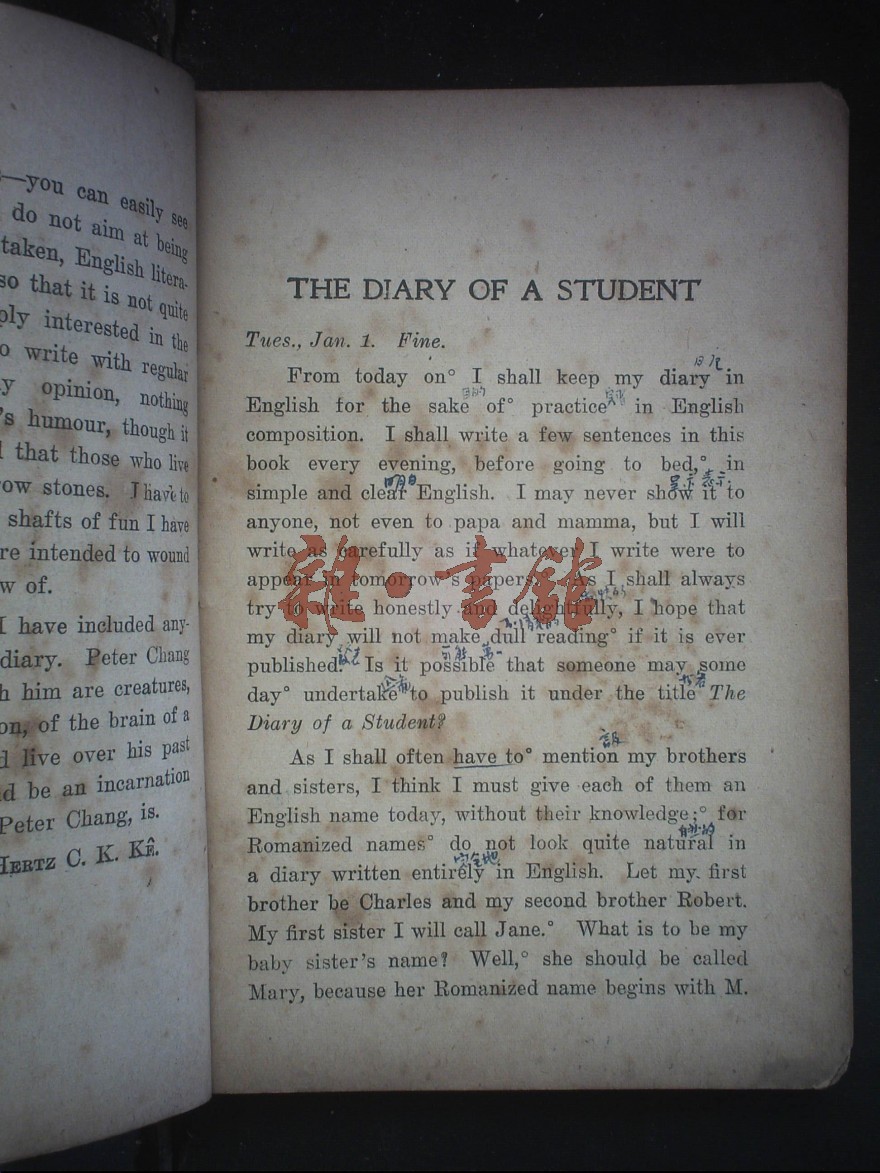 —you can easily see
do not aim at being
taken, English litera-
so that it is not quite
ply interested in the
o write with regular
y opinion, nothing
's humour, though it
d that those who live
ow stones. I have to
shafts of fun I have
re intended to wound
w of.
I have included any-
diary. Peter Chang
h him are creatures,
on, of the brain of a
d live over his past
ld be an incarnation
Peter Chang, is.
HERTZ C. K. KÊ.
THE DIARY OF A STUDENT
Tues., Jan. 1. Fine.
日記
From today on° I shall keep my diary in
目的
English for the sake of° practice in English
composition. I shall write a few sentences in this
book every evening, before going to bed,° in
明白
simple and clear English. I may never show it to
anyone, not even to papa and mamma, but I will
write as carefully as if whatever I write were to
appear in tomorrow's papers. As I shall always
try to write honestly and delightfully, I hope that
my diary will not make dull reading° if it is ever
可能
published. Is it possible that someone may some
day° undertake to publish it under the title The
Diary of a Student?
As I shall often have to° mention my brothers
and sisters, I think I must give each of them an
English name today, without their knowledge;° for
自然的
Romanized names° do not look quite natural in
完全地
a diary written entirely in English. Let my first
brother be Charles and my second brother Robert.
My first sister I will call Jane.° What is to be my
baby sister's name? Well,° she should be called
Mary, because her Romanized name begins with M.
雜·書館